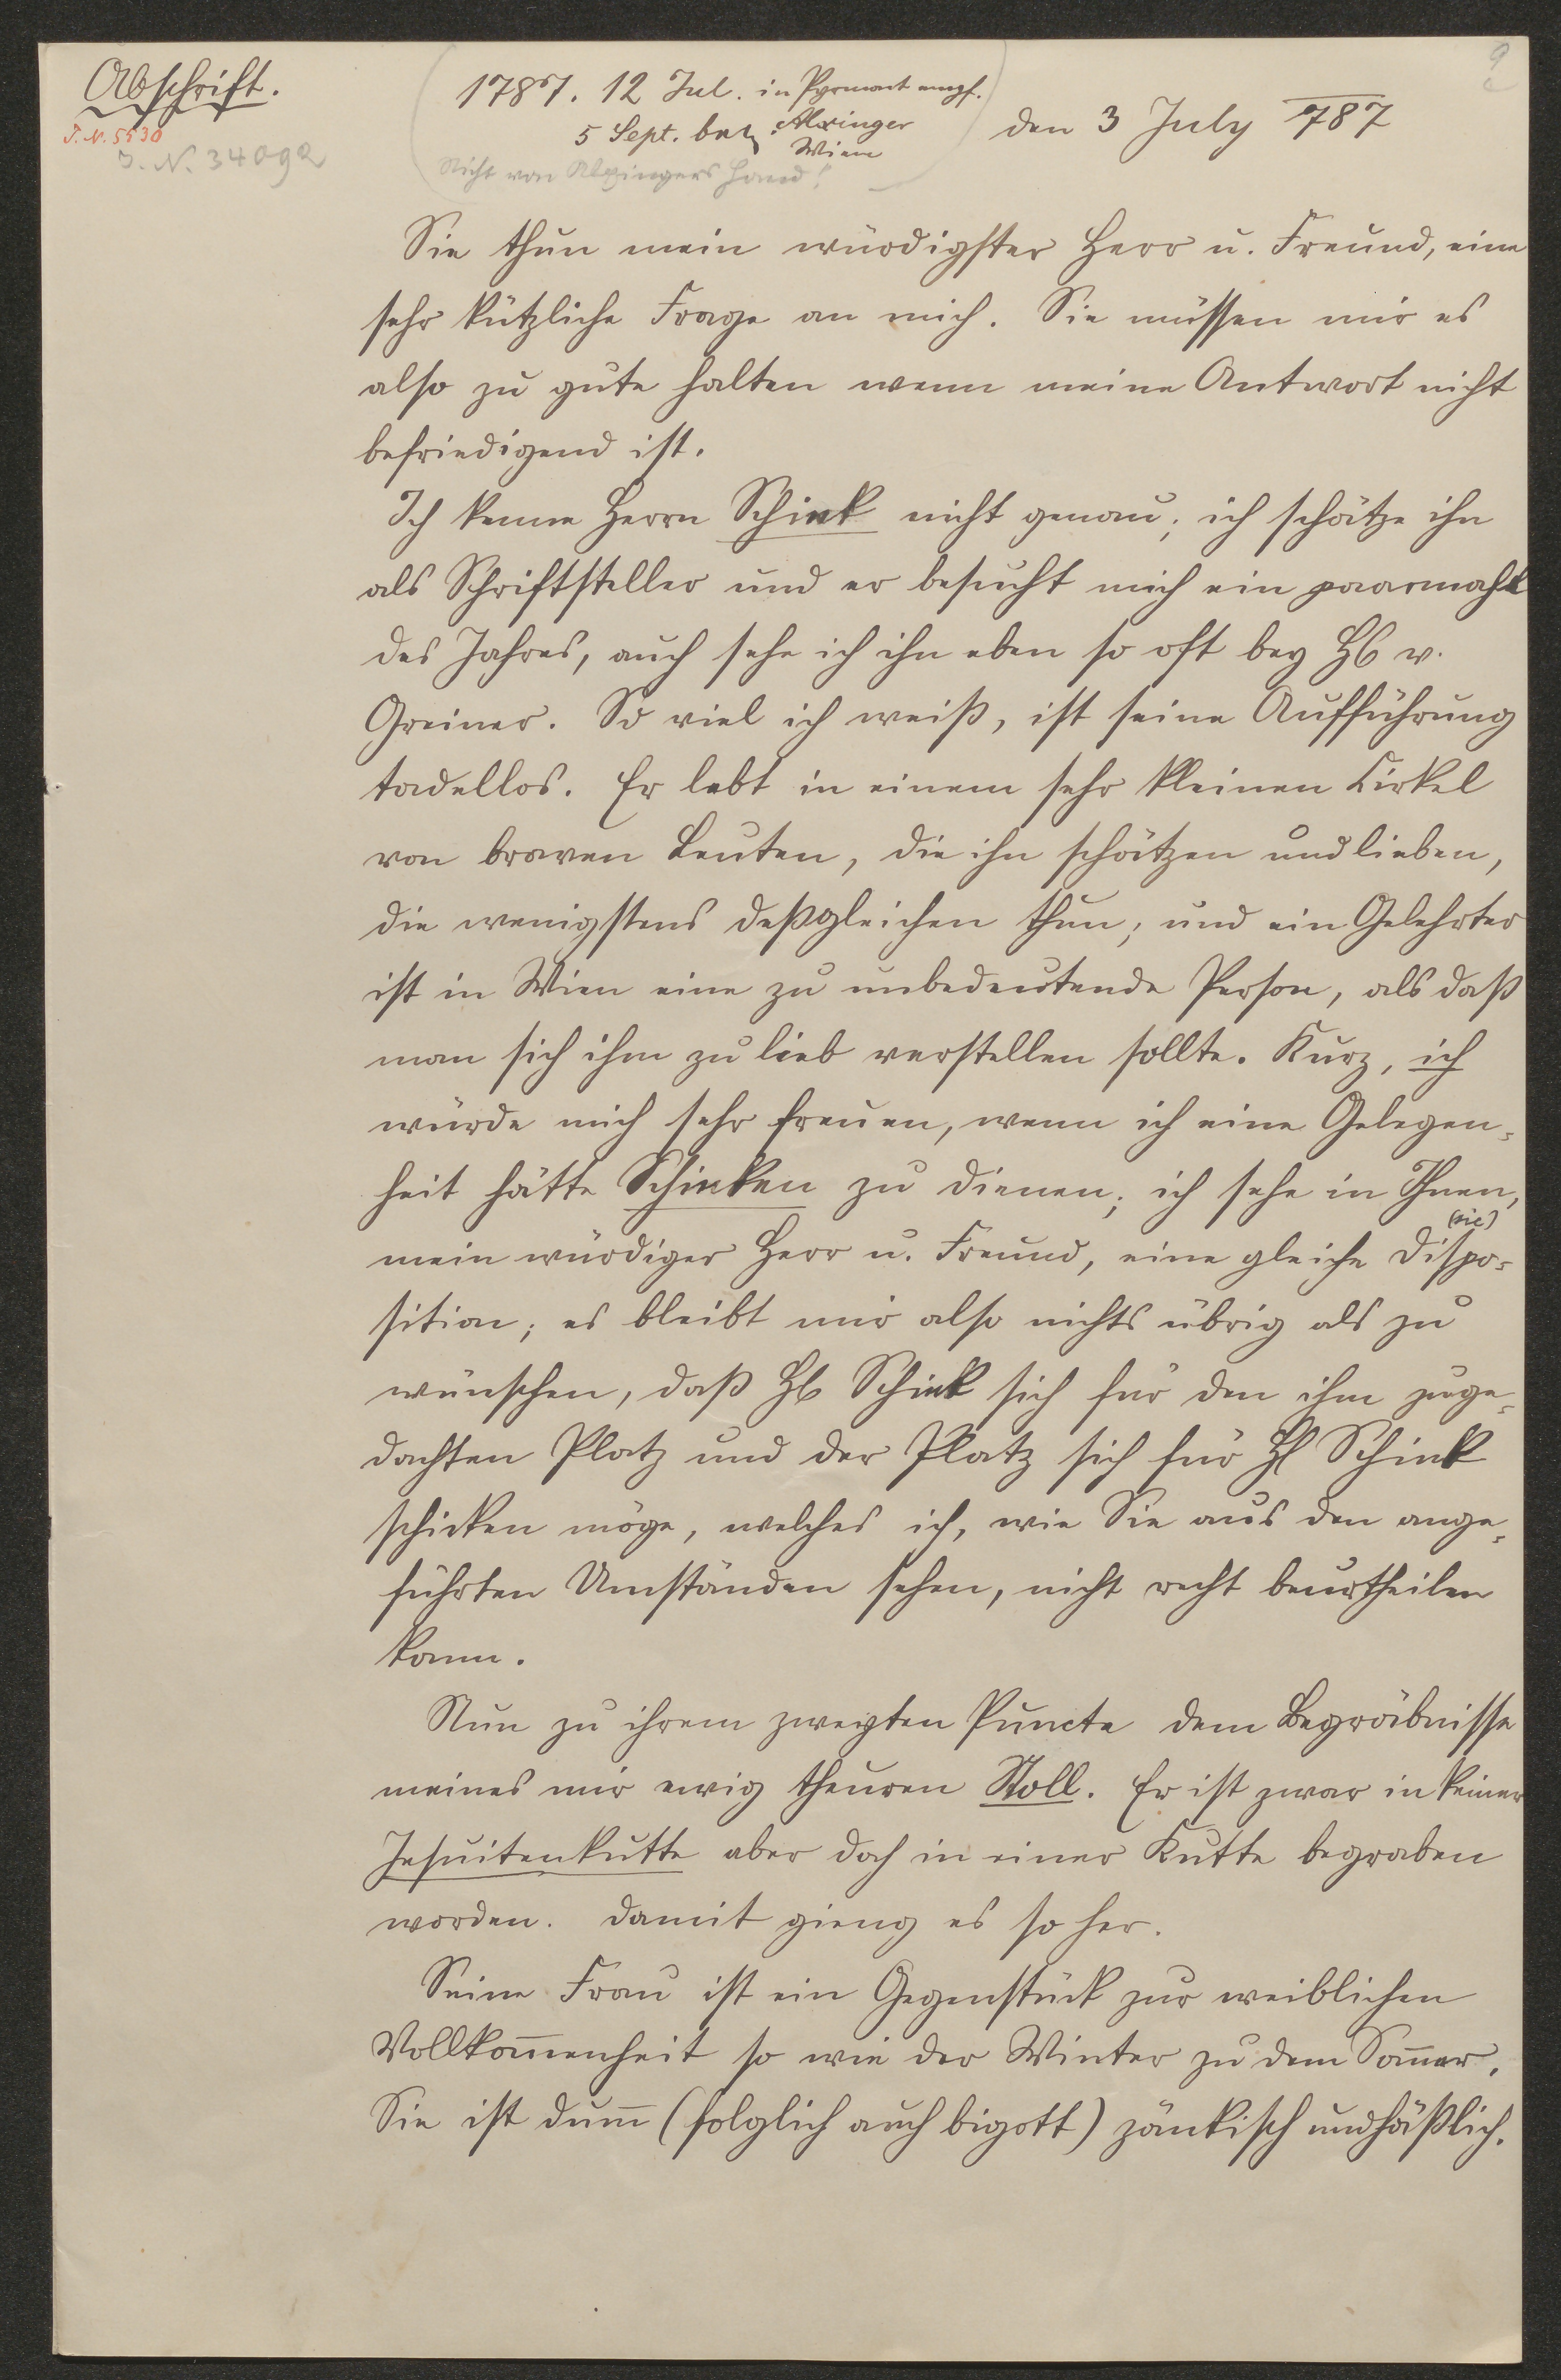 Abschrift.
J. N. 5530
J. N. 34092
1787. 12 Jul. in Pyrmont empf.
5 Sept. Alxinger
Wien
Nicht von Alxingers Hand!
2
den 3 July 787
Sie thun mein würdigster Herr u. Freund, eine
sehr kützliche Frage an mich. Sie müssen mir es
also zu gute halten wenn meine Antwort nicht
befriedigend ist.
Ich kenne Herrn Schink nicht genau; ich schätze ihn
als Schriftsteller und er besucht mich ein paarmahl
des Jahres, auch sehe ich ihn eben so oft bey H v.
Greiner. So viel ich weiß, ist seine Aufführung
tadellos. Er lebt in einem sehr kleinen Cirkel
von braven Leuten, die ihn schätzen und lieben,
die wenigstens deßgleichen thun; und ein Gelehrter
ist in Wien eine zu unbedeutende Person, als daß
man sich ihm zu lieb verstellen sollte. Kurz, ich
würde mich sehr freuen, wenn ich eine Gelegen-
heit hätte Schinken zu dienen; ich sehe in Ihnen,
(sic)
mein würdiger Herr u. Freund, eine gleiche Dispo-
sition; es bleibt mir also nichts übrig als zu
wünschen, daß H Schink sich für den ihm zuge-
dachten Platz und der Platz sich für H Schink
schicken möge, welches ich, wie Sie aus den ange-
führten Umständen sehen, nicht recht beurtheilen
kann.
Nun zu ihrem zweyten Puncte dem Begräbnisse
meines mir ewig theuren Stoll. Er ist zwar in keiner
Jesuitenkutte aber doch in einer Kutte begraben
worden. Damit gieng es so her.
Seine Frau ist ein Gegenstück zur weiblichen
Vollkom̄enheit so wie der Winter zu dem Som̄er.
Sie ist dum̄ (folglich auch bigott) zänkisch und häßlich.